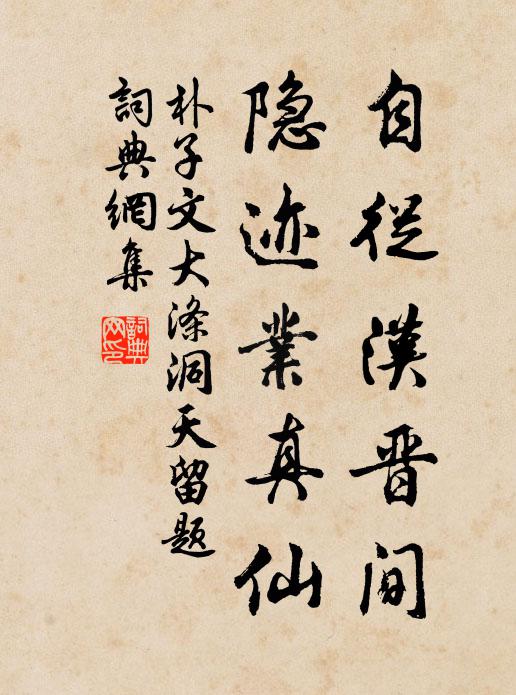 自從漢晋間
隐迹業真仙
朴子文大涤洞天留題
詞典網集
詞典網印